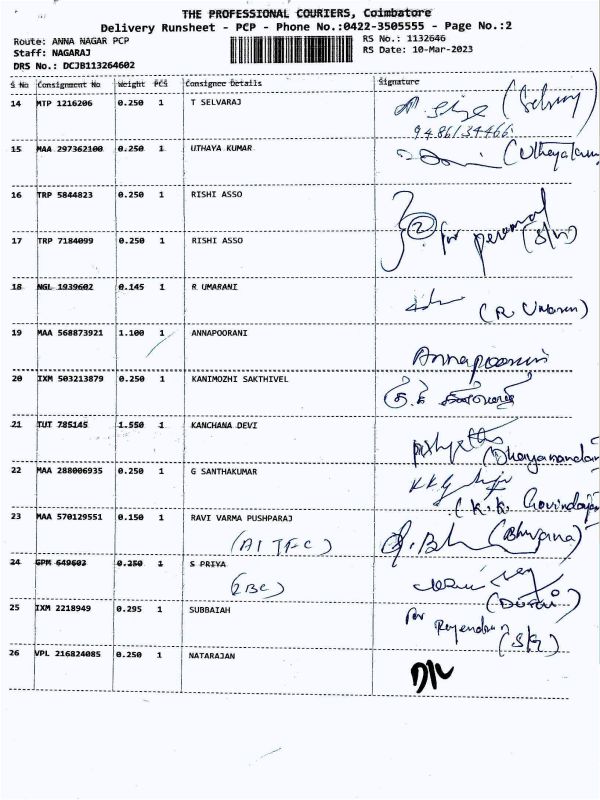 THE PROFESSIONAL COURIERS, Coimbatore
Delivery Runsheet - PCP - Phone No.:0422-3505555 - Page No.:2
Route: ANNA NAGAR PCP RS No.: 1132646
Staff: NAGARAJ RS Date: 10-Mar-2023
DRS No.: DCJB113264602
S No Consignment No Weight PCS Consignee Details Signature
14 MTP 1216206 0.250 1 T SELVARAJ
9486134466
15 MAA 297362100 0.250 1 UTHAYA KUMAR
16 TRP 5844823 0.250 1 RISHI ASSO
2 for perumal
17 TRP 7184099 0.250 1 RISHI ASSO (S/W)
18 NGL 1939602 0.145 1 R UMARANI
(R
19 MAA 568873921 1.100 1 ANNAPOORANI
20 IXM 503213879 0.250 1 KANIMOZHI SAKTHIVEL
21 TUT 785145 1.550 1 KANCHANA DEVI
(Dhayanandan
22 MAA 288006935 0.250 1 G SANTHAKUMAR
(K.K. Govindaraj
23 MAA 570129551 0.150 1 RAVI VARMA PUSHPARAJ (Bhuvana)
24 GPM 649603 0.250 1 S PRIYA
(IBC) (Durai)
25 IXM 2218949 0.295 1 SUBBAIAH for
Rajendran
26 VPL 216824085 0.250 1 NATARAJAN
D/L